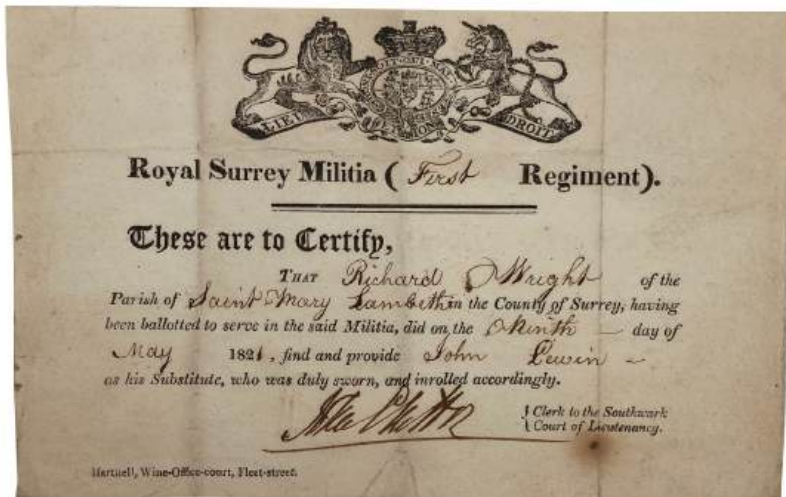 HONI SOIT QUI MAL
DIEU ET MON DROIT
Royal Surrey Militia ( First Regiment).
These are to Certify,
THAT Richard Wright of the
Parish of Saint Mary Lambeth in the County of Surrey, having
been ballotted to serve in the said Militia, did on the Ninth — day of
May 1821, find and provide John Lewin —
as his Substitute, who was duly sworn, and inrolled accordingly.
Clerk to the Southwark
Court of Lieutenancy.
Hartnell, Wine-Office-court, Fleet-street.